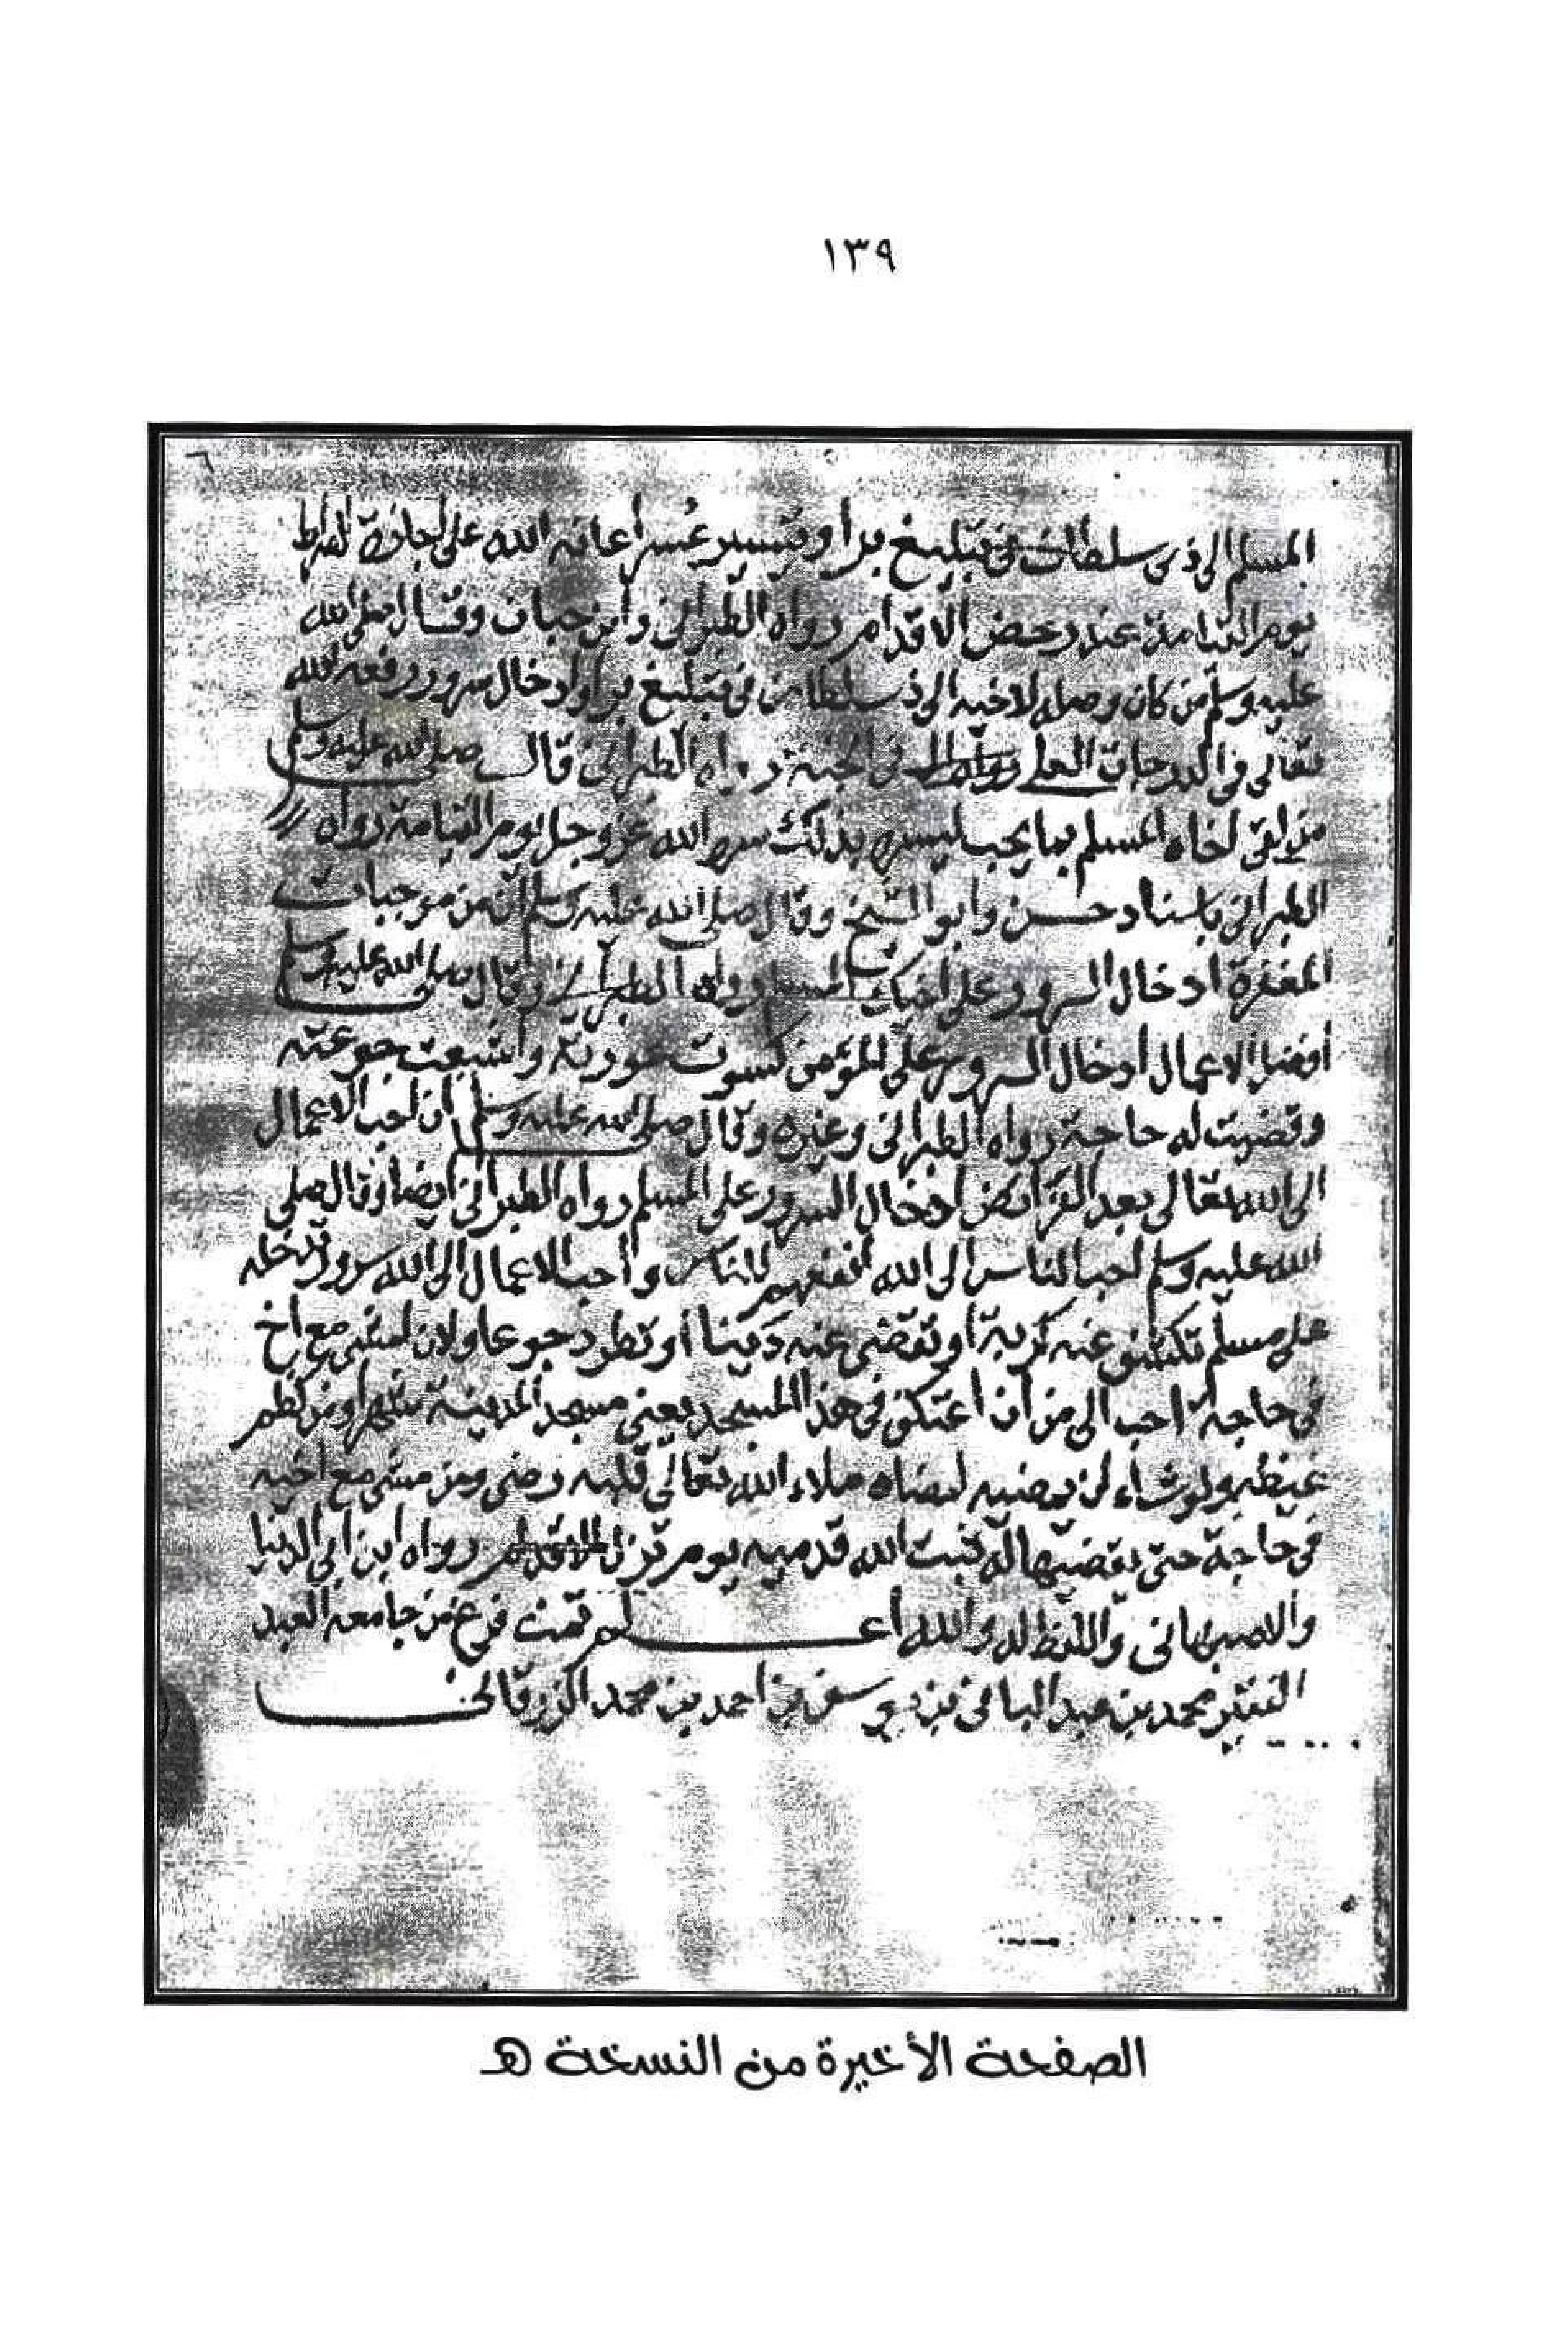 ١٣٩
٦
المسلم الى ذى سلطان فى تبليغ برا وتيسير عُسر اعانه الله على اجازة الصراط
يوم القيامة عند دحض الاقدام رواه الطبرانى وابن حبان وقال صلى الله
عليه وسلم من كان وصله لاخيه الى ذى سلطان فى تبليغ بر او ادخال سرور رفعه الله
تعالى فى الدرجات العلى فى الجنة رواه الطبرانى قال صلى الله عليه وسلم
من لقى اخاه المسلم بما يحب ليسره بذلك سره الله عز وجل يوم القيامة رواه
الطبرانى باسناد حسن وابو الشيخ وقال صلى الله عليه وسلم ان من موجبات
المغفرة ادخال السرور على اخيك المسلم رواه الطبرانى وقال صلى الله عليه وسلم
أفضل الاعمال ادخال السرور على المؤمن كسوت عورته واشبعت جوعته
وقضيت له حاجة رواه الطبرانى وغيره وقال صلى الله عليه وسلم ان احب الاعمال
الى الله تعالى بعد الفرائض ادخال السرور على المسلم رواه الطبرانى ايضا وقال صلى
الله عليه وسلم احب الناس الى الله انفعهم للناس وأحب الاعمال الى الله سرور تدخله
على مسلم تكشف عنه كربة او تقضى عنه دَينا أو تطرد جوعا ولان امشى مع اخ
فى حاجة احب الى من ان اعتكف فى هذا المسجد يعنى مسجد المدينة شهرا ومن كظم
غيظه ولو شاء ان يمضيه امضاه ملاء الله تعالى قلبه رضى ومن مشى مع اخيه
فى حاجة حتى يقضيها له ثبت الله قدميه يوم تزل الاقدام رواه ابن ابى الدنيا
والاصبهانى واللفظ له والله أعلم تمت فرغ من جامعه العبد
الفقير محمد بن عبد الباقى بن يوسف بن احمد بن محمد الزرقانى
الصفحة الأخيرة من النسخة هـ